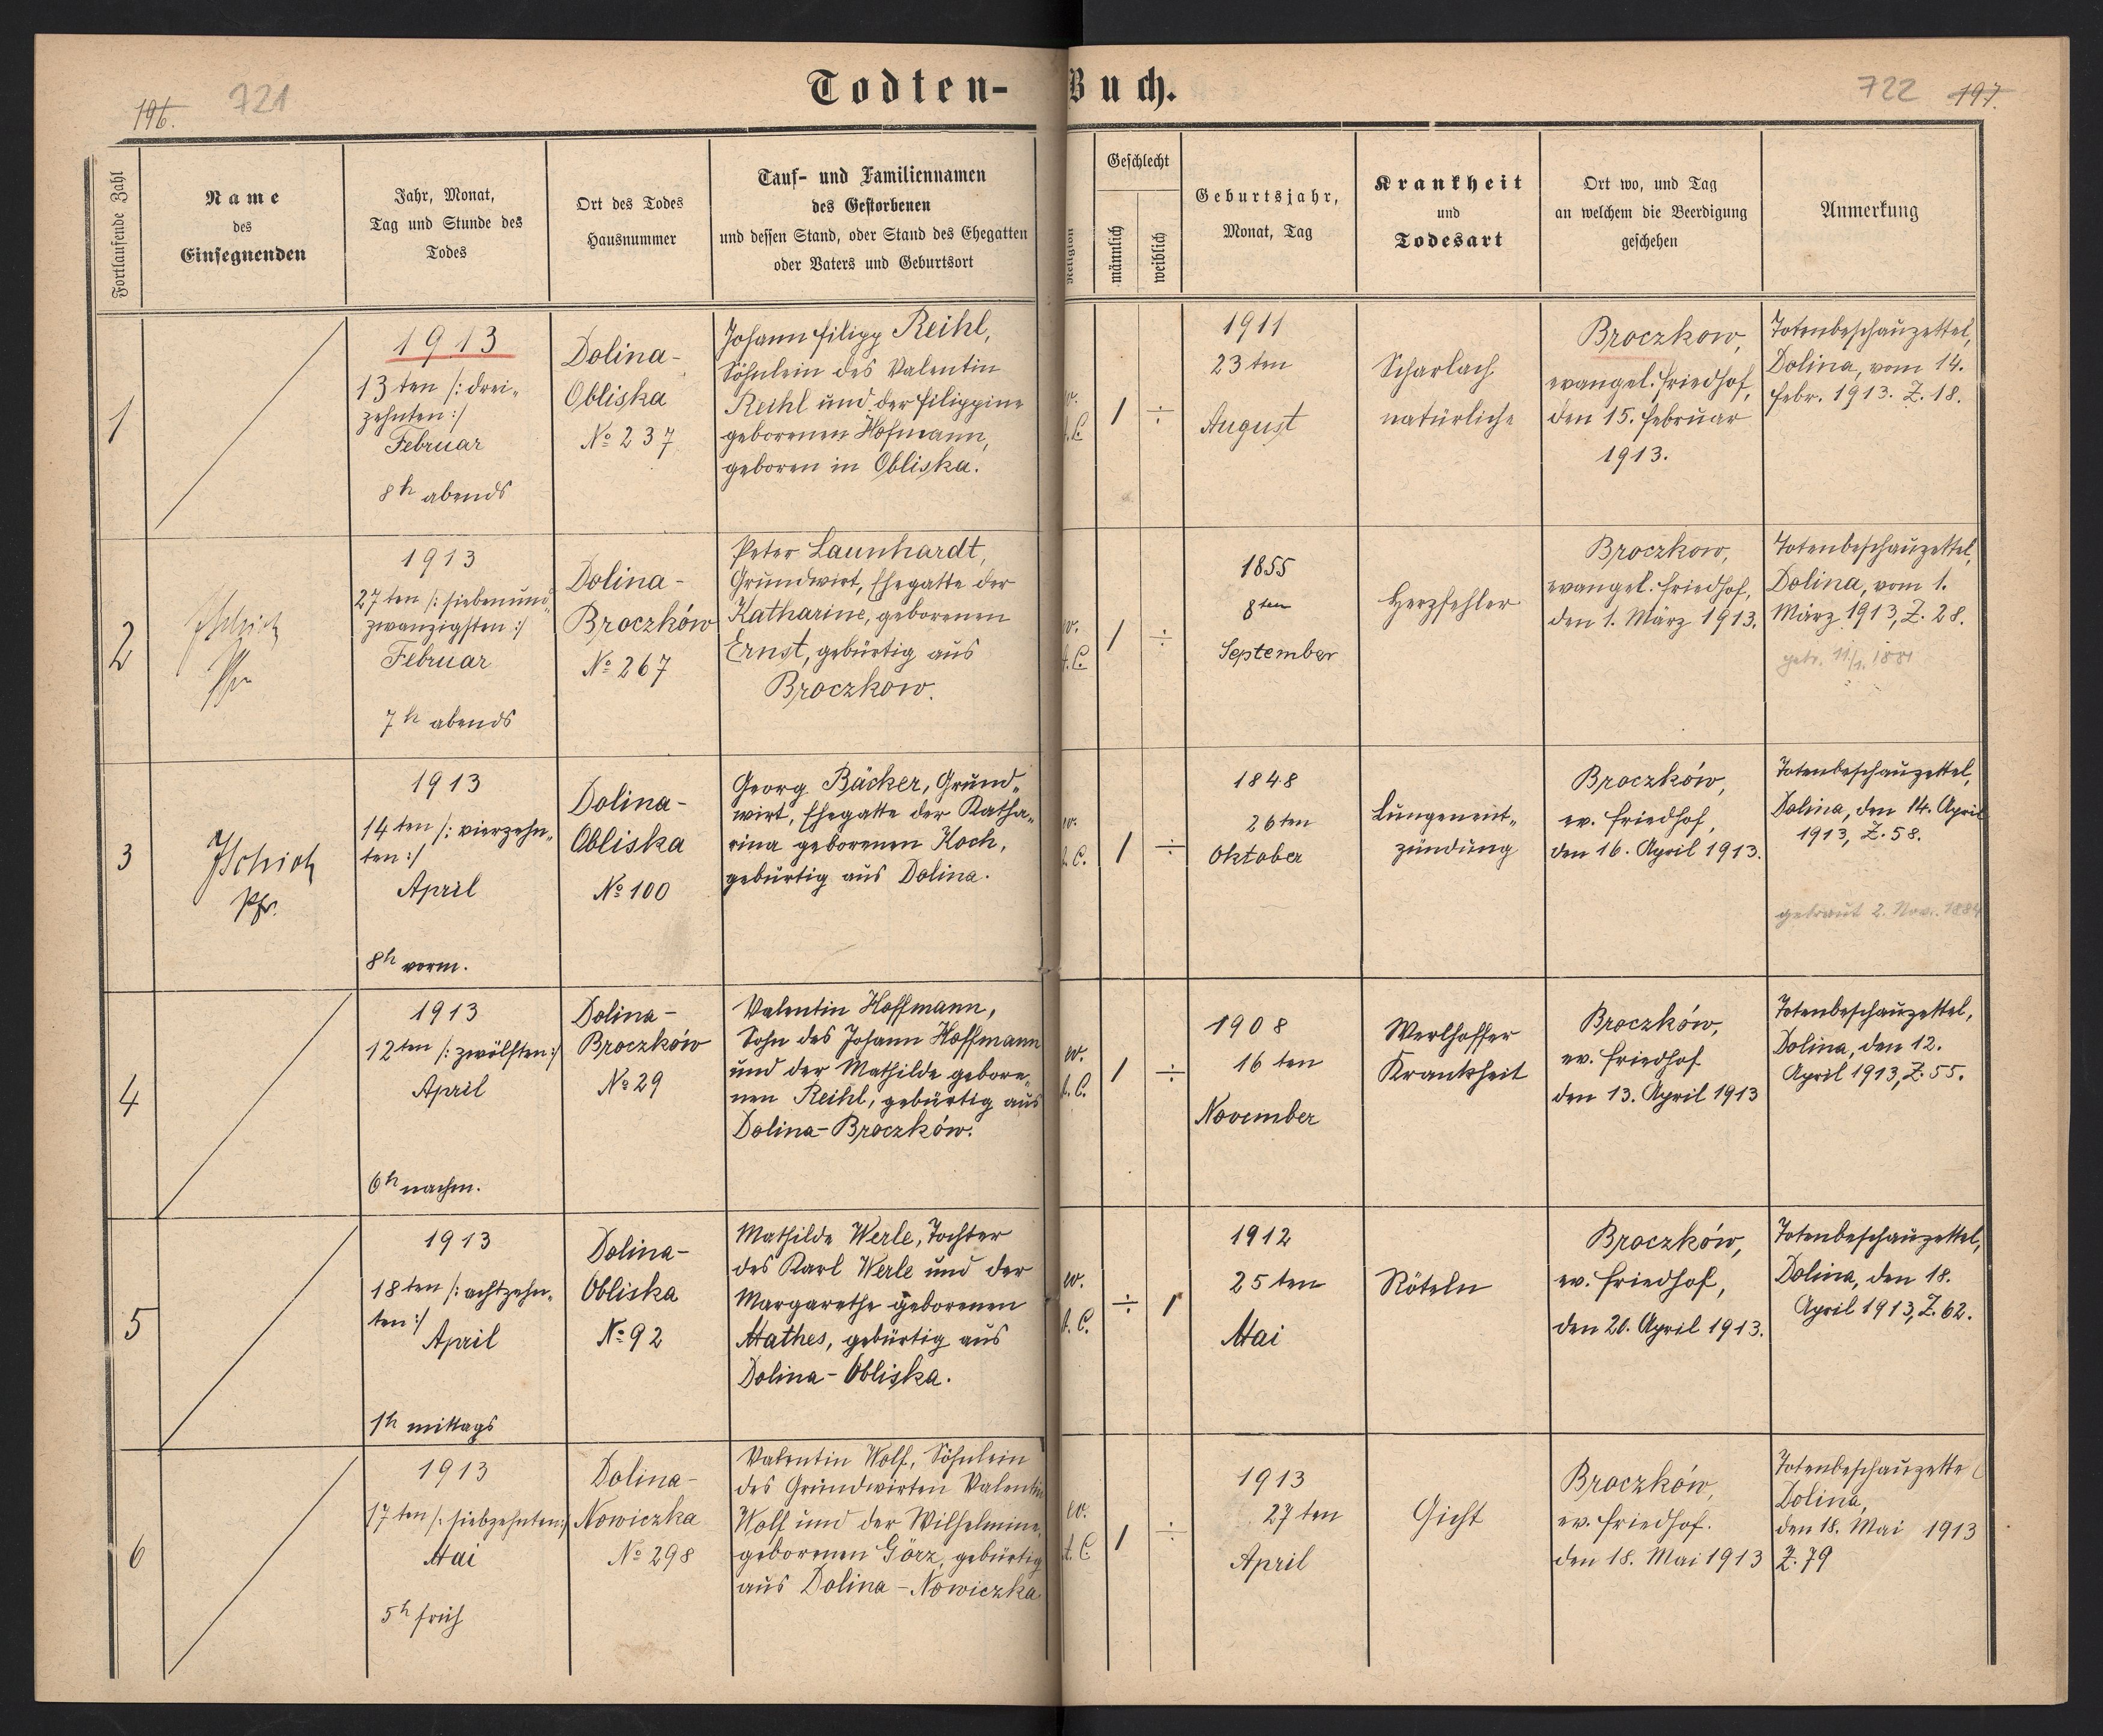 Todten-Buch.
196.
721
722
197.
Fortlaufende Zahl
Name
des
Einsegnenden
Jahr, Monat,
Tag und Stunde des
Todes
Ort des Todes
Hausnummer
Tauf- und Familiennamen
des Gestorbenen
und dessen Stand, oder Stand des Ehegatten
oder Vaters und Geburtsort
Religion
Geschlecht
männlich
weiblich
Geburtsjahr,
Monat, Tag
Krankheit
und
Todesart
Ort wo, und Tag
an welchem die Beerdigung
geschehen
Anmerkung
1
1913
13ten /: drei-
zehnten :/
Februar
8h abends
Dolina-
Obliska
№ 237
Johann Filipp Reihl,
Söhnlein des Valentin
Reihl und der Filippine
geborenen Hofmann,
geboren in Obliska.
1
÷
1911
23ten
August
Scharlach
natürliche
Broczkow,
evangel. Friedhof,
den 15. Februar
1913.
Totenbeschauzettel,
Dolina, vom 14.
Febr. 1913. Z. 18.
2
1913
27ten /: siebenund-
zwanzigsten :/
Februar
7h abends
Dolina-
Broczków
№ 267
Peter Launhardt,
Grundwirt, Ehegatte der
Katharine, geborenen
Ernst, gebürtig aus
Broczkow.
1
÷
1855
8ten
September
Herzfehler
Broczkow,
evangel. Friedhof,
den 1. März 1913.
Totenbeschauzettel,
Dolina, vom 1.
März 1913, Z. 28.
getr. 11/1. 1881
3
Pfr.
1913
14ten /: vierzehn-
ten :/
April
8h vorm.
Dolina-
Obliska
№ 100
Georg Bäcker, Grund-
wirt, Ehegatte der Katha-
rina geborenen Koch,
gebürtig aus Dolina.
1
÷
1848
26ten
Oktober
Lungenent-
zündung
Broczków,
ev. Friedhof,
den 16. April 1913.
Totenbeschauzettel,
Dolina, den 14. April
1913, Z. 58.
getraut 2. Nov. 1884
4
1913
12ten /: zwölften :/
April
6h nachm.
Dolina-
Broczków
№ 29
Valentin Hoffmann,
Sohn des Johann Hoffmann
und der Mathilde gebore-
nen Reihl, gebürtig aus
Dolina-Broczków.
ev.
A. C.
1
÷
1908
16ten
November
Werlhoffer
Krankheit
Broczków,
ev. Friedhof
den 13. April 1913
Totenbeschauzettel,
Dolina, den 12.
April 1913, Z. 55.
5
1913
18ten /: achtzehn-
ten :/
April
1h mittags
Dolina-
Obliska
№ 92
Mathilde Werle, Tochter
des Karl Werle und der
Margarethe geborenen
Mathes, gebürtig aus
Dolina-Obliska.
ev.
A. C.
÷
1
1912
25ten
Mai
Röteln
Broczków,
ev. Friedhof,
den 20. April 1913.
Totenbeschauzettel,
Dolina, den 18.
April 1913, Z. 62.
6
1913
17ten /: siebzehnten :/
Mai
5h früh
Dolina-
Nowiczka
№ 298
Valentin Wolf, Söhnlein
des Grundwirten Valentin
Wolf und der Wilhelmine,
geborenen Görz, gebürtig
aus Dolina-Nowiczka
ev.
A. C.
1
÷
1913
27ten
April
Gicht
Broczków,
ev. Friedhof.
den 18. Mai 1913
Totenbeschauzettel
Dolina,
den 18. Mai 1913
Z. 79